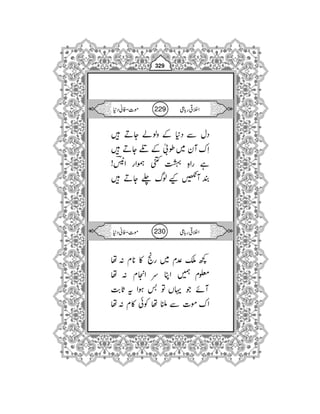 329
اخلاقی رباعی 229 موت-فانی دنیا
دل سے دنیا کے ولولے جاتے ہیں
اِک آن میں طوبیٰ کے تلے جاتے ہیں
ہے راہِ بہشت کتنی ہموار انیسؔ!
بند آنکھیں کیے لوگ چلے جاتے ہیں
اخلاقی رباعی 230 موت-فانی دنیا
کچھ ملکِ عدم میں رنج کا نام نہ تھا
معلوم ہمیں اپنا سر انجام نہ تھا
آئے جو یہاں تو بس ہوا یہ ثابت
اک موت سے ملنا تھا کوئی کام نہ تھا